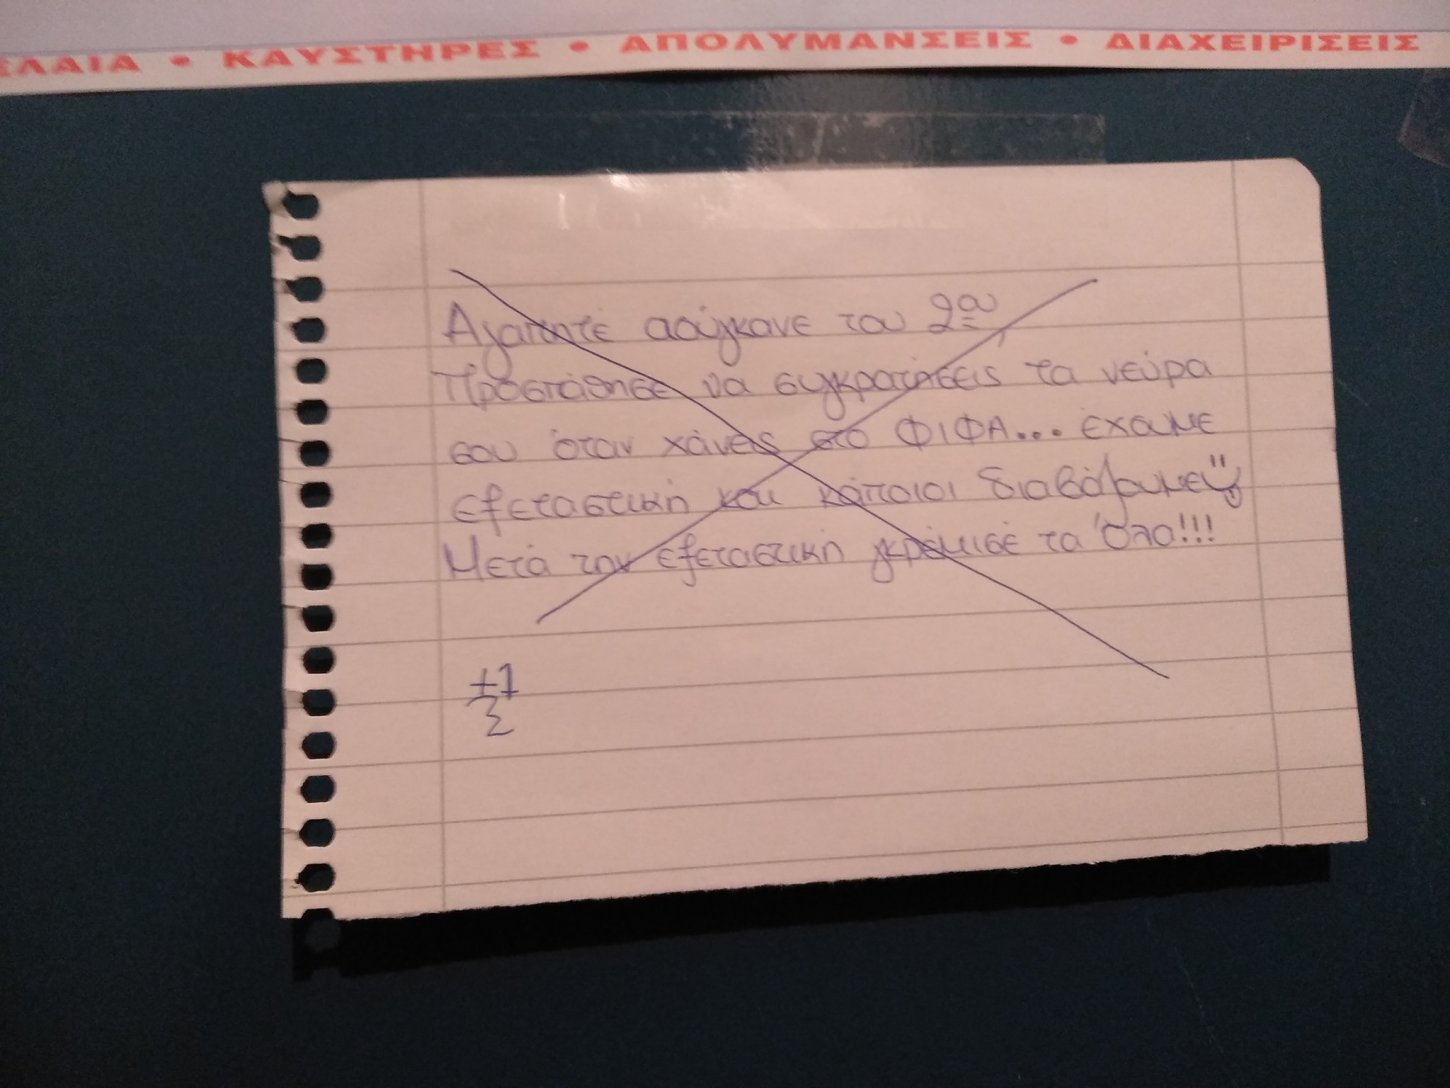 ΕΛΑΙΑ • ΚΑΥΣΤΗΡΕΣ • ΑΠΟΛΥΜΑΝΣΕΙΣ • ΔΙΑΧΕΙΡΙΣΕΙΣ
Αγαπητέ ασύγκανε του 2ου
Προσπάθησε να συγκρατήσεις τα νεύρα
σου όταν χάνεις στο ΦΙΦΑ... έχουμε
εξεταστική και κάποιοι διαβάζουμε
Μετά την εξεταστική γκρέμισέ τα όλα!!!
+1
Σ